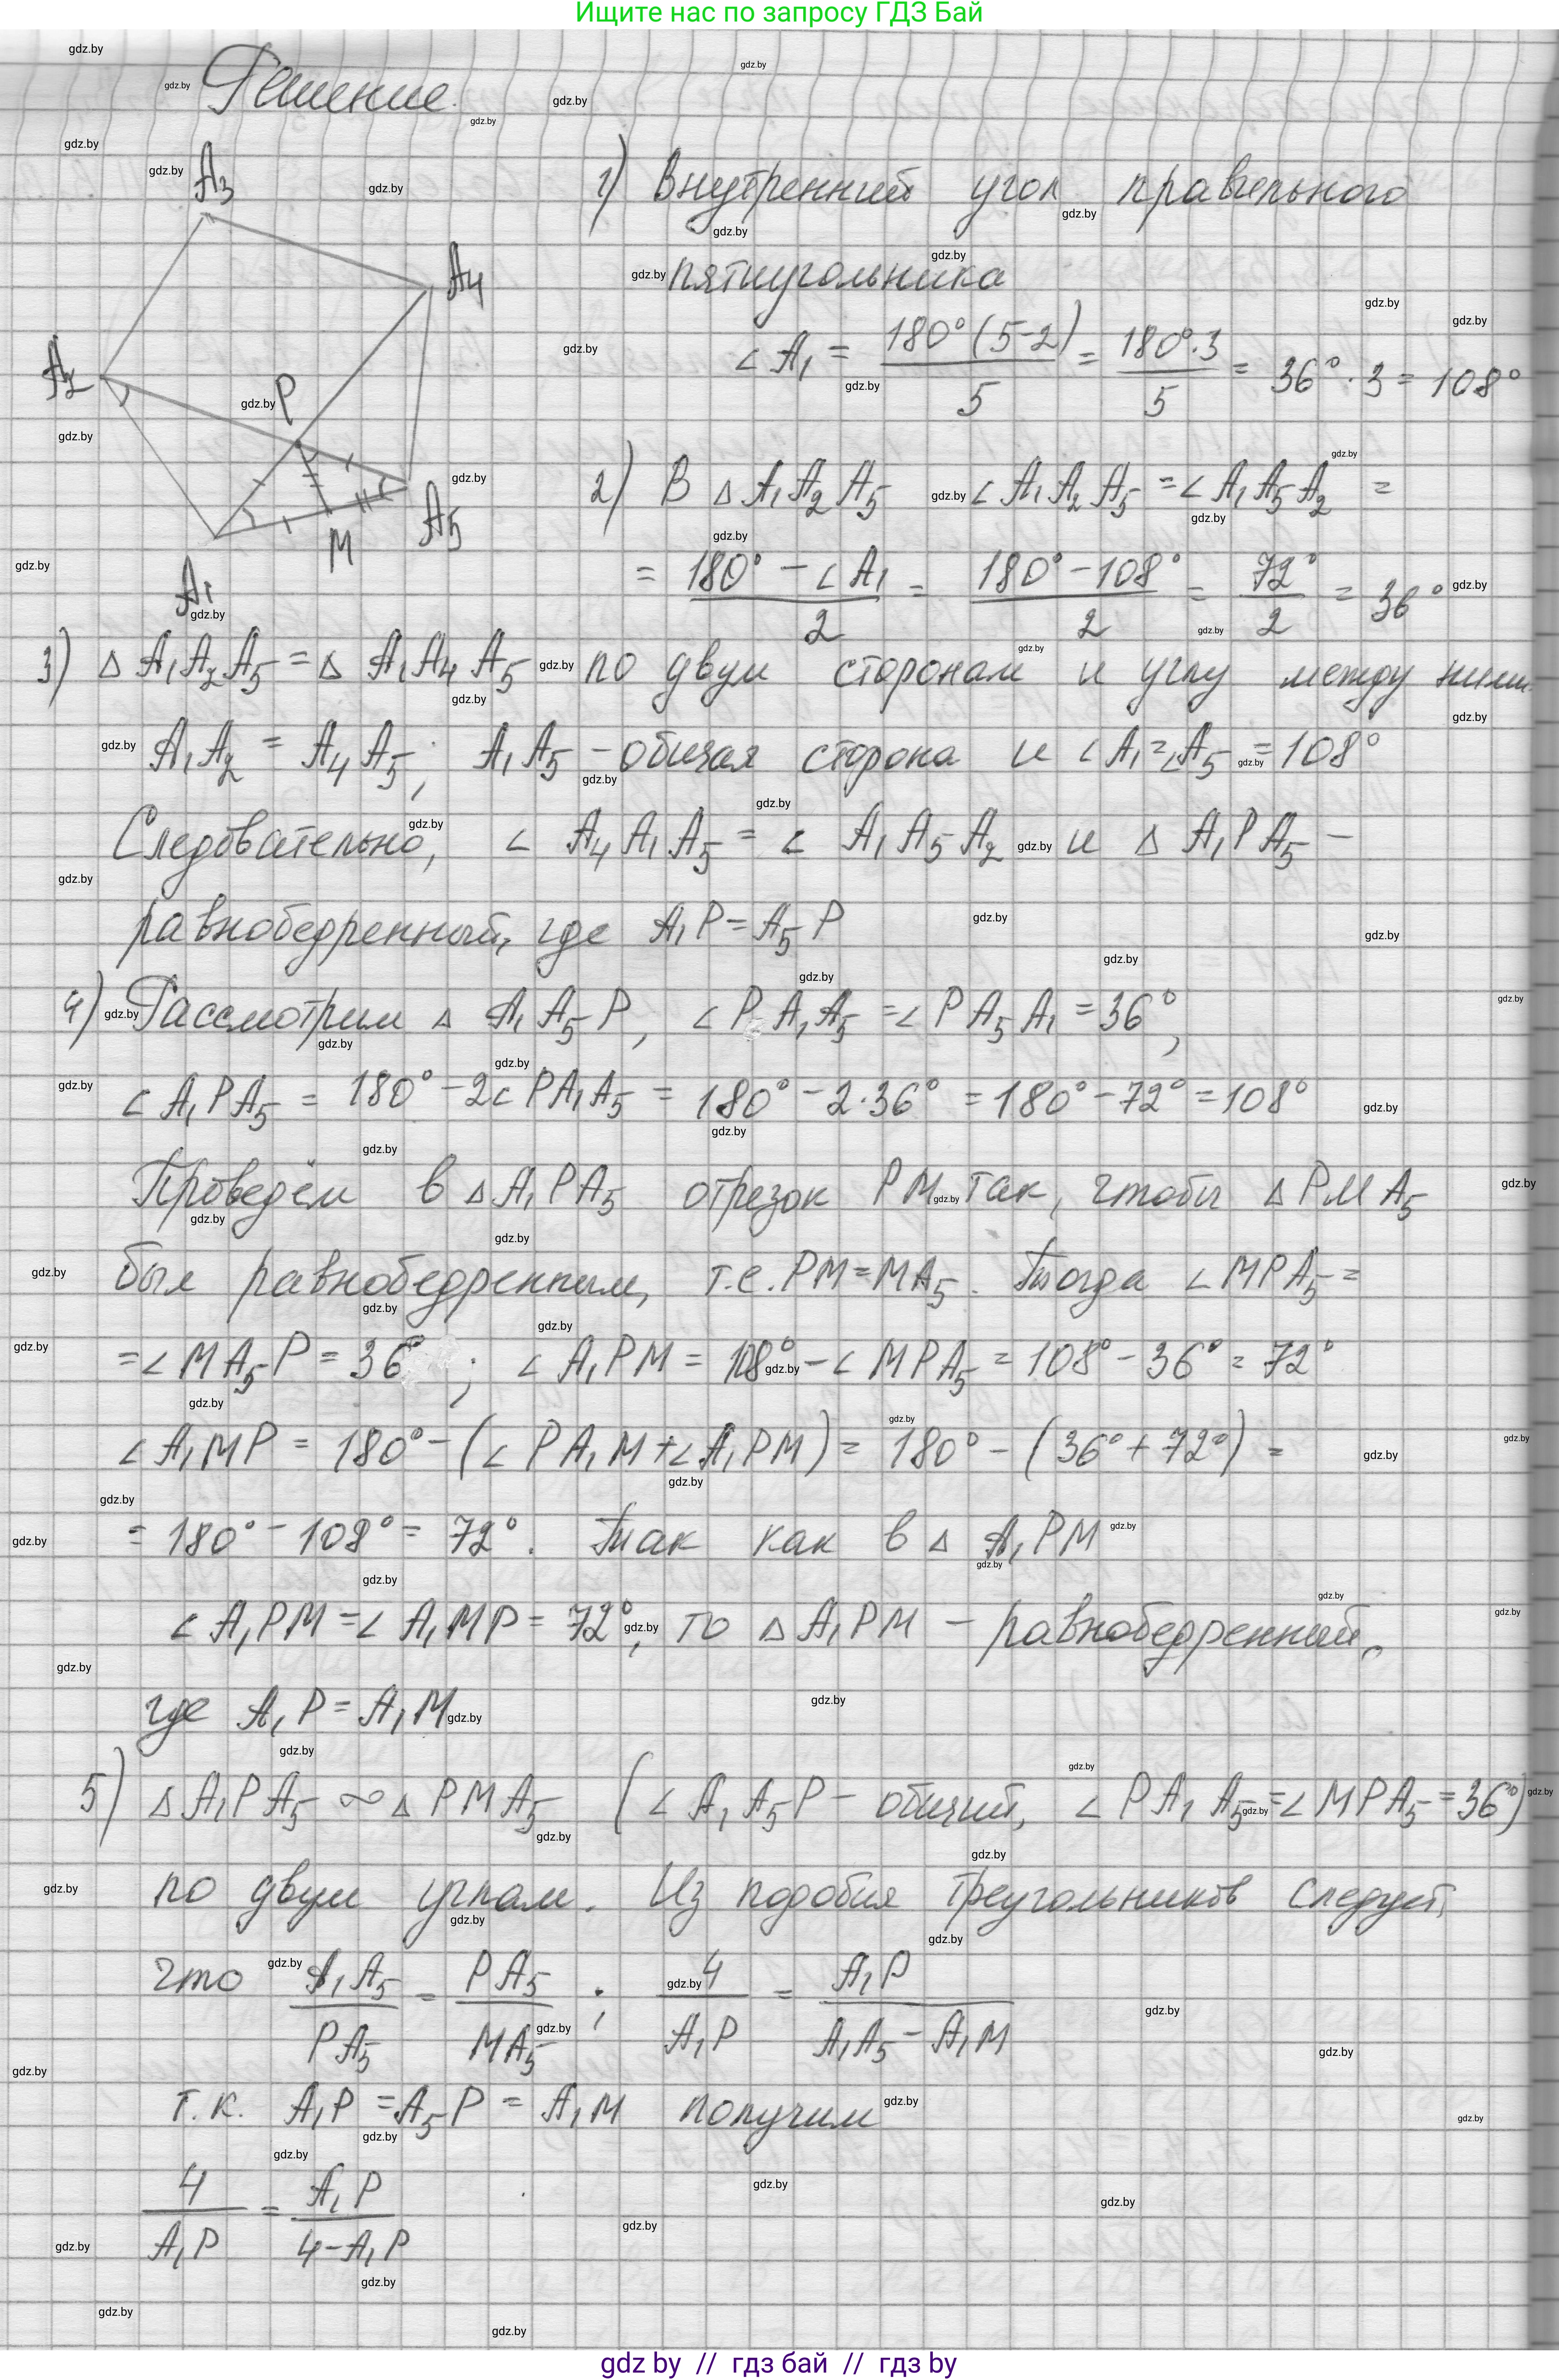 Ищите нас по запросу ГДЗ Бай
Решение.
A3
A4
A2
P
A5
M
A1
1) Внутренний угол правильного
пятиугольника
∠A₁ = 180°(5-2)/5 = 180°·3/5 = 36°·3 = 108°
2) В △A₁A₂A₅ ∠A₁A₂A₅ = ∠A₁A₅A₂ =
= (180° - ∠A₁)/2 = (180° - 108°)/2 = 72°/2 = 36°
3) △A₁A₂A₅ = △A₁A₄A₅ по двум сторонам и углу между ними.
A₁A₂ = A₄A₅; A₁A₅ - общая сторона и ∠A₁=∠A₅ = 108°
Следовательно, ∠A₄A₁A₅ = ∠A₁A₅A₂ и △A₁PA₅ -
равнобедренный, где A₁P = A₅P
4) Рассмотрим △A₁A₅P, ∠PA₁A₅ = ∠PA₅A₁ = 36°,
∠A₁PA₅ = 180° - 2∠PA₁A₅ = 180° - 2·36° = 180° - 72° = 108°
Проведём в △A₁PA₅ отрезок PM так, чтобы △PMA₅
был равнобедренным, т.е. PM = MA₅. Тогда ∠MPA₅ =
= ∠MA₅P = 36°; ∠A₁PM = 108° - ∠MPA₅ = 108° - 36° = 72°
∠A₁MP = 180° - (∠PA₁M + ∠A₁PM) = 180° - (36° + 72°) =
= 180° - 108° = 72°. Так как в △A₁PM
∠A₁PM = ∠A₁MP = 72°, то △A₁PM - равнобедренный,
где A₁P = A₁M
5) △A₁PA₅ ∞ △PMA₅ (∠A₁A₅P - общий, ∠PA₁A₅ = ∠MPA₅ = 36°)
по двум углам. Из подобия треугольников следует,
что A₁A₅/PA₅ = PA₅/MA₅; 4/A₁P = A₁P/(A₁A₅ - A₁M)
т.к. A₁P = A₅P = A₁M получим
4/A₁P = A₁P/(4 - A₁P)
gdz by // гдз бай // гдз by